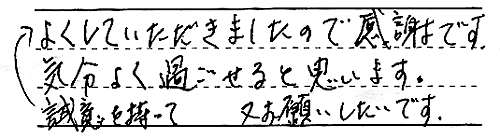 よくしていただきましたので感謝です。
気分よく過ごせると思います。
誠意を持って 又お願いしたいです.